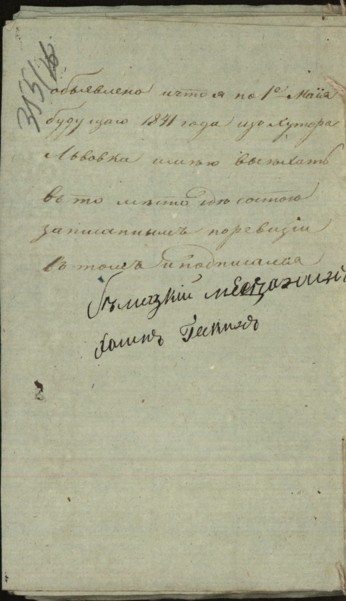 объявлено и что я по 1е Маія
будущаго 1841 года изъ Хутора
Львовка имѣю выехать
въ то мѣсто где состою
записаннымъ поревизіи
въ томъ и подписался
мещанинъ